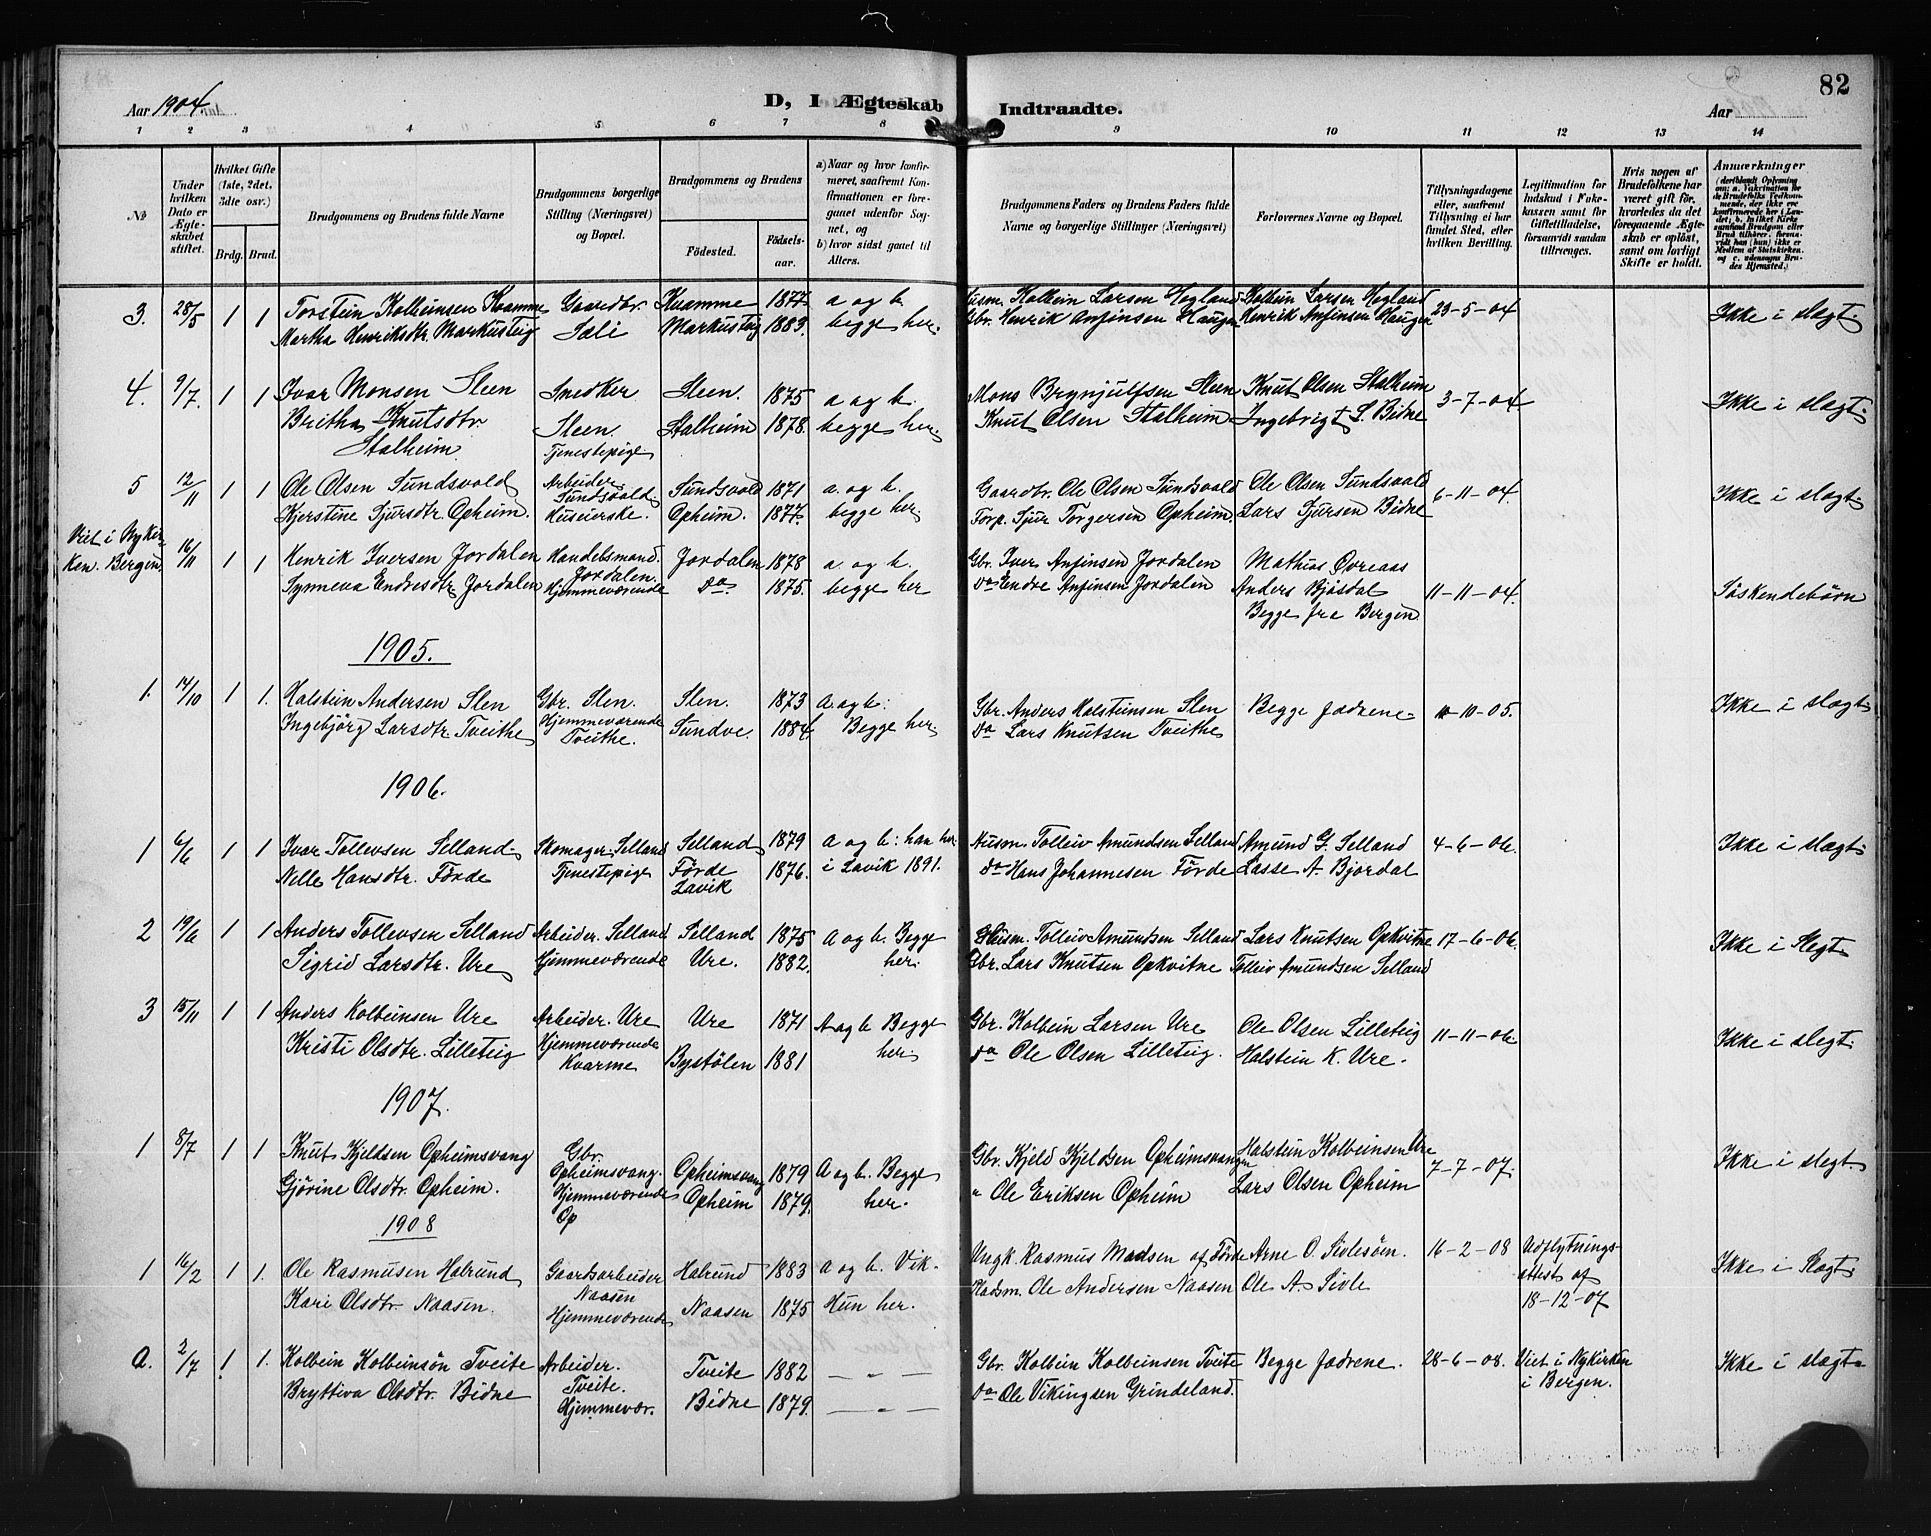 82
Aar 1904.
D, I Ægteskab Indtraadte.
Aar
1 2 3 4 5 6 7 8 9 10 11 12 13 14
№
Under hvilken Dato er Ægteskabet stiftet.
Hvilket Gifte (1ste, 2det, 3die osv.)
Brdg. Brud.
Brudgommens og Brudens fulde Navne
Brudgommens borgerlige Stilling (Næringsvei) og Bopæl.
Brudgommens og Brudens
Fødested.
Fødselsaar.
a) Naar og hvor konfirmeret, saafremt Konfirmationen er foregaaet udenfor Sognet, og
b) hvor sidst gaaet til Alters.
Brudgommens Faders og Brudens Faders fulde Navne og borgerlige Stillinger (Næringsvei)
Forlovernes Navne og Bopæl.
Tillysningsdagene eller, saafremt Tillysning ei har fundet Sted, efter hvilken Bevilling.
Legitimation for Indskud i Enkekassen samt for Giftetilladelse, forsaavidt saadan tiltrænges.
Hvis nogen af Brudefolkene har været gift før, hvorledes da det foregaaende Ægteskab er opløst, samt om lovligt Skifte er holdt.
Anmærkninger
3. 28/5 1 1 Torstein Kolbeinsen Kvamme Gaardbr. Kvamme 1877 a og b. Husm. Kolbein Larsen Hegland Kolbein Larsen Hegland 23-5-04 Ikke i slægt.
Martha Henriksdtr. Markusteig Sali Markusteig 1883. begge her. Gbr. Henrik Anfinsen Haugen Henrik Anfinsen Haugen
4. 9/7. 1 1 Ivar Monsen Sleen Snedker Sleen. 1875 a og b. Mons Brynjulfsen Sleen Knut Olsen Stalheim 3-7-04 Ikke i slægt.
Britha Knutsdtr. Sleen. Stalheim 1878. begge her. Knut Olsen Stalheim Ingebrigt S. Bidne
Stalheim Tjenestepige
5 12/11 1 1 Ole Olsen Sundsvold Arbeider Sundsvold Sundsvold 1871 a. og b. Gaardbr. Ole Olsen Sundsvold Ole Olsen Sundsvold 6-11-04. Ikke i slægt.
Kjerstine Sjursdtr. Opheim. Huseierske. Opheim. 1877. begge her. Forp. Sjur Torgersen Opheim. Lars Sjursen Bidne
Viet i Nykirken. Bergen. 16/11 1 1 Henrik Iversen Jordalen Handelsmand. Jordalen 1878 a og b. Gbr. Iver Anfinsen Jordalen Mathias Øvreaas
Synneva Endresdtr Jordalen Jordalen. Hjemmeværende do. 1875. begge her do Endre Anfinsen Jordalen Anders Bjösdal 11-11-04. Söskendebörn
Begge fra Bergen
1905.
1. 14/10 1 1. Halstein Andersen Slen Gbr. Slen. Slen. 1873 A. og b: Gbr. Anders Halsteinsen Slen Begge Fædrene. 10-05. Ikke i slægt.
Ingebjörg Larsdtr. Tveithe Hjemmeværende Tveithe. Sundve. 1884. Begge her. do Lars Knutsen Tveithe
1906.
1 6/6 1 1 Ivar Tollevsen Selland. Skomager. Selland Selland 1879 a og b: han her. Husm. Tolleiv Amundsen Selland Amund G. Selland 4-6-06. Ikke i slægt.
Nelle Hansdtr. Förde Tjenestepige Förde Lavik 1876. i Lavik 1891. do Hans Johannesen Förde Lasse A. Björdal
2 19/6 1 1 Anders Tollevsen Selland Arbeider. Selland Selland 1875 A og b. Begge Husm. Tolleiv Amundsen Selland Lars Knutsen Opkvitne 17-6-06. Ikke i Slegt
Sigrid Larsdtr. Ure Hjemmeværende Ure. 1882. her. Gbr. Lars Knutsen Opkvitne Tolleiv Amundsen Selland
3 15/11 1 1 Anders Kolbeinsen Ure Arbeider. Ure Ure 1871 A og b Begge Gbr. Kolbein Larsen Ure Ole Olsen Lilleteig 11-11-06. Ikke i slegt.
Kristi Olsdtr. Lilleteig Hjemmeværende Kvarme Bystölen 1881 her do Ole Olsen Lilleteig. Halstein K. Ure.
1907.
1 8/7 1 1. Knut Kjeldsen Opheimsvang Gbr. Opheimsvang. Opheimsvang 1879 A og b. Begge Gbr. Kjeld Kjeldsen Opheimsvangen Halstein Kolbeinsen Ure 7-7-07. Ikke i slegt
Gjörine Olsdtr. Opheim. Hjemmeværende Op Opheim 1879. her. " Ole Eriksen Opheim Lars Olsen Opheim
1908
1 16/2 1 1. Ole Rasmusen Halrund Gaardsarbeider Halrund 1883 A og b. Vik. Ungk. Rasmus Madsen af Förde Arne O. Sivlesöen. 16-2-08 Udflytningsattest af 18-12-07 Ikke i Slægt.
Kari Olsdtr. Naasen. Naasen Hjemmeværende Naasen 1875 Hun her. Kadsm. Ole Andersen Naasen Ole A. Sivle
2. 2/7 1 1. Kolbein Kolbeinsön Tveite Arbeider. Tveite. Tveite 1882 — " — Gbr. Kolbein Kolbeinsen Tveite Begge Fædrene. 28-6-08. Viet i Nykirken i Bergen. Ikke i slægt.
Bryttiva Olsdtr. Bidne Hjemmevær. Bidne 1879. — " — do Ole Vikingsen Grindeland.